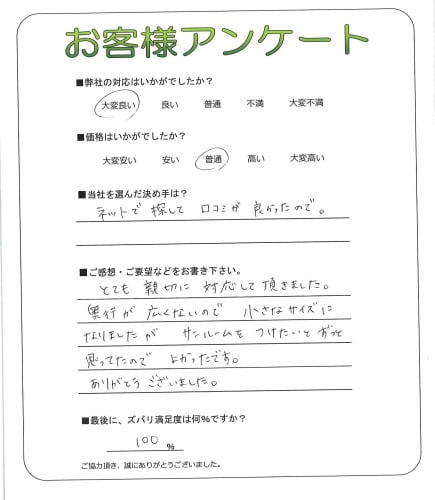 お客様アンケート
■弊社の対応はいかがでしたか?
大変良い 良い 普通 不満 大変不満
■価格はいかがでしたか?
大変安い 安い 普通 高い 大変高い
■当社を選んだ決め手は?
ネットで 探して 口コミが 良かったので。
■ご感想・ご要望などをお書き下さい。
とても 親切に 対応して 頂きました。
奥行が 広くないので 小さなサイズに
なりましたが サンルームを つけたいと ずっと
思ってたので よかったです。
ありがとう ございました。
■最後に、ズバリ満足度は何%ですか?
100 %
ご協力頂き、誠にありがとうございました。